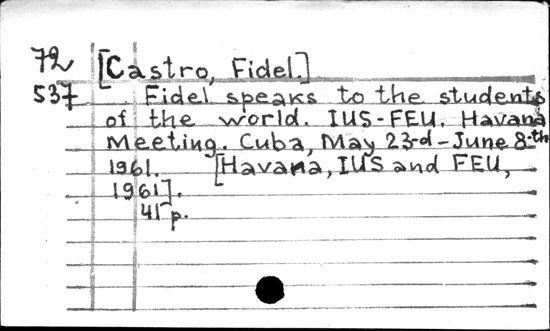 72 [Castro, Fidel.]
537 Fidel speaks to the students
of the world. IUS-FEU. Havana
Meeting. Cuba, May 23-d - June 8-th
1961. [Havana, IUS and FEU,
1961].
41 p.